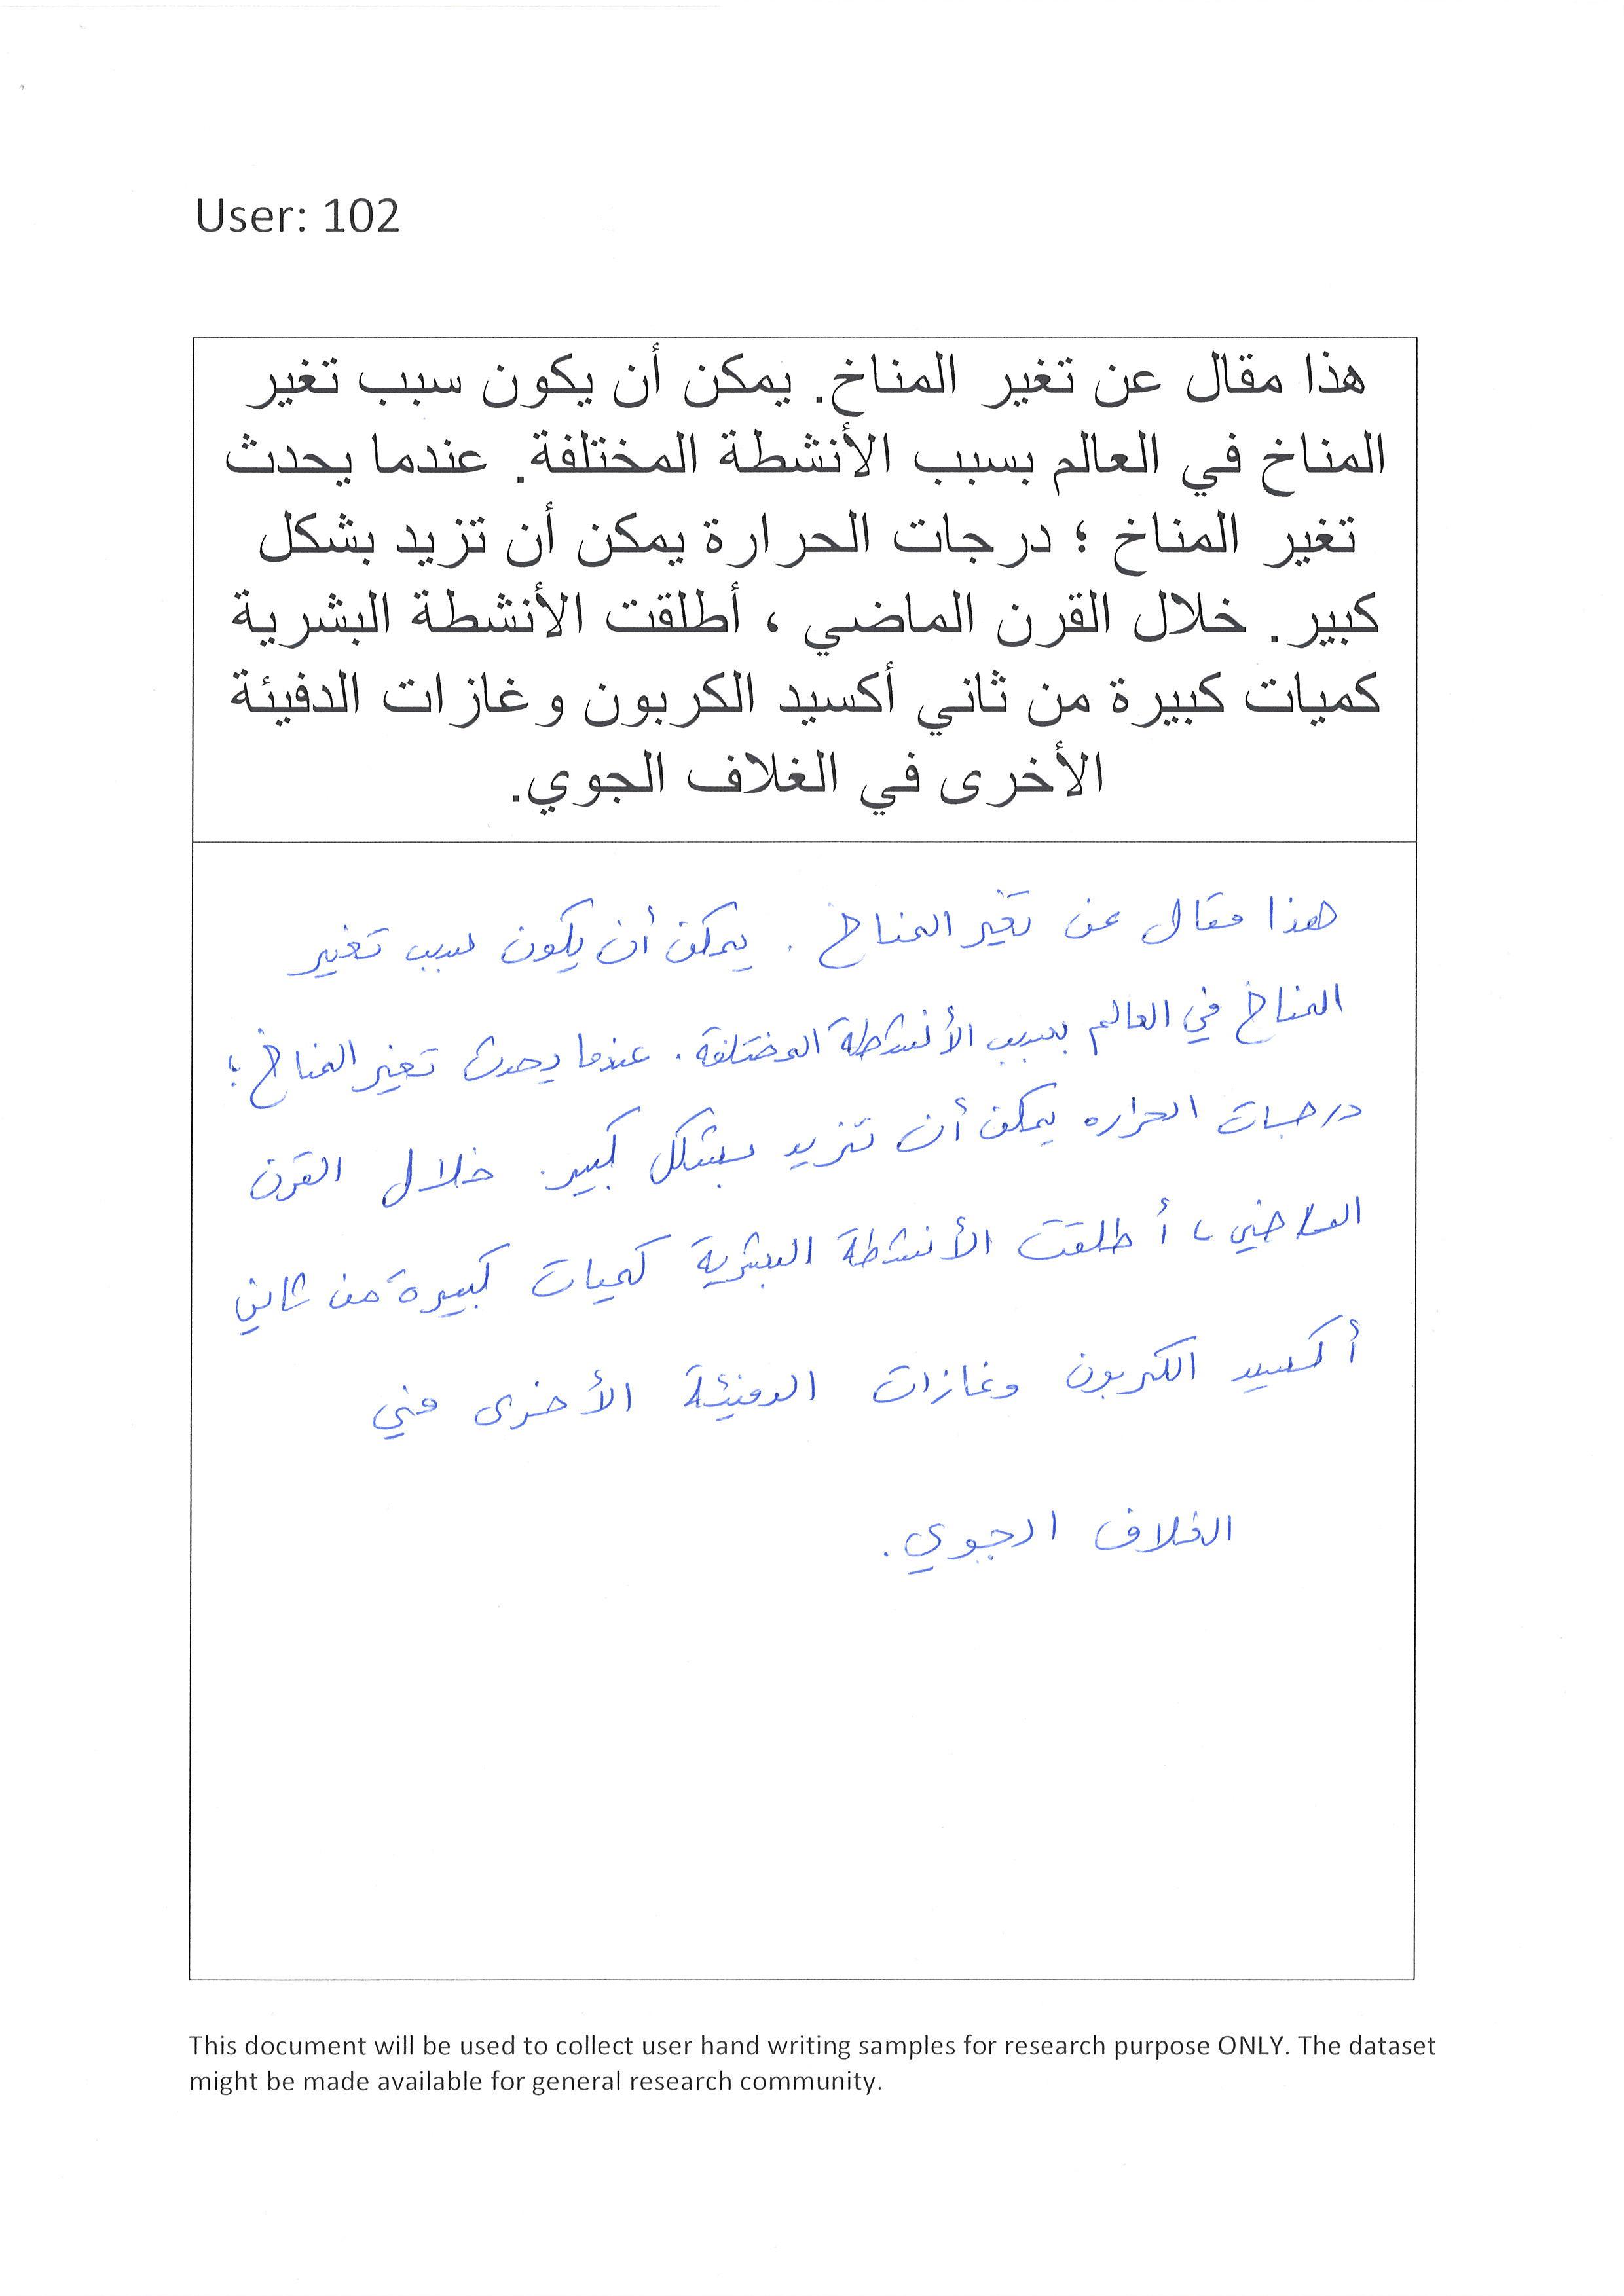 User: 102
هذا مقال عن تغير المناخ. يمكن أن يكون سبب تغير
المناخ في العالم بسبب الأنشطة المختلفة. عندما يحدث
تغير المناخ ؛ درجات الحرارة يمكن أن تزيد بشكل
كبير. خلال القرن الماضي ، أطلقت الأنشطة البشرية
كميات كبيرة من ثاني أكسيد الكربون وغازات الدفيئة
الأخرى في الغلاف الجوي.
هذا مقال عن تغير المناخ . يمكن أن يكون سبب تغير
المناخ في العالم بسبب الأنشطة المختلفة . عندما يحدث تغير المناخ ؛
درجات الحراره يمكن أن تزيد بشكل كبير . خلال القرن
الماضي ، أطلقت الأنشطة البشرية كميات كبيرة من ثاني
أكسيد الكربون وغازات الدفيئة الأخرى في
الغلاف الجوي .
This document will be used to collect user hand writing samples for research purpose ONLY. The dataset
might be made available for general research community.